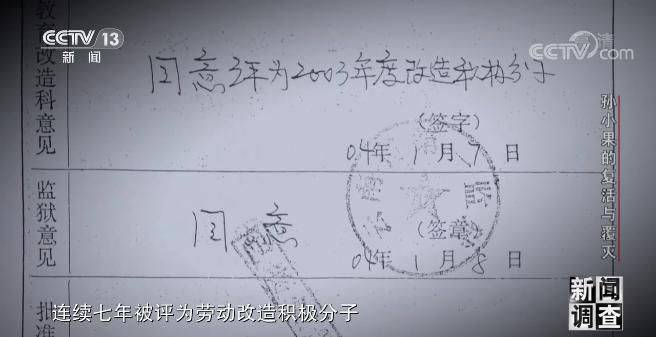 CCTV 13
新闻
高清
CCTV.com
教育改造科意见
同意评为2003年度改造积极分子
(签字)
04年1月7日
监狱意见
同意
(签章)
04年1月8日
批准
孙小果的复活与覆灭
新闻
调查
连续七年被评为劳动改造积极分子